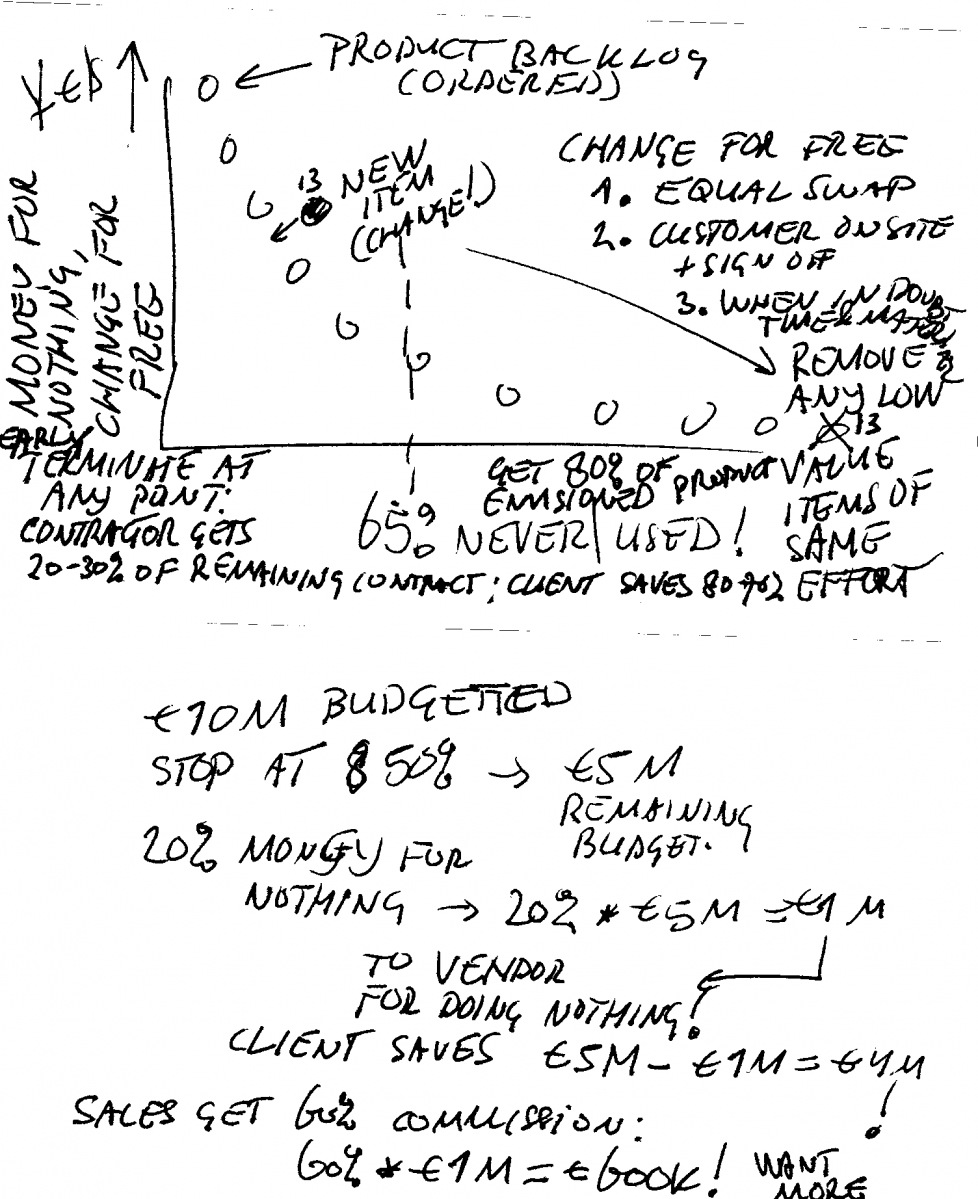 PRODUCT BACKLOG
(ORDERED)
¥€$
MONEY FOR
NOTHING,
CHANGE FOR
FREE
13 NEW
ITEM
(CHANGE!)
CHANGE FOR FREE
1. EQUAL SWAP
2. CUSTOMER ONSITE
+ SIGN OFF
3. WHEN IN DOUBT
REMOVE
ANY LOW
13
VALUE
ITEMS OF
SAME
EFFORT
EARLY
TERMINATE AT
ANY POINT:
CONTRACTOR GETS
20-30% OF REMAINING CONTRACT; CLIENT SAVES
GET 80% OF
ENVISIONED PRODUCT
65% NEVER USED!
€10M BUDGETTED
STOP AT 50% → €5M
REMAINING
BUDGET.
20% MONEY FOR
NOTHING → 20% * €5M = €1M
TO VENDOR
FOR DOING NOTHING!
CLIENT SAVES €5M - €1M = €4M!
SALES GET 60% COMMISSION:
60% * €1M = €600K! WANT
MORE